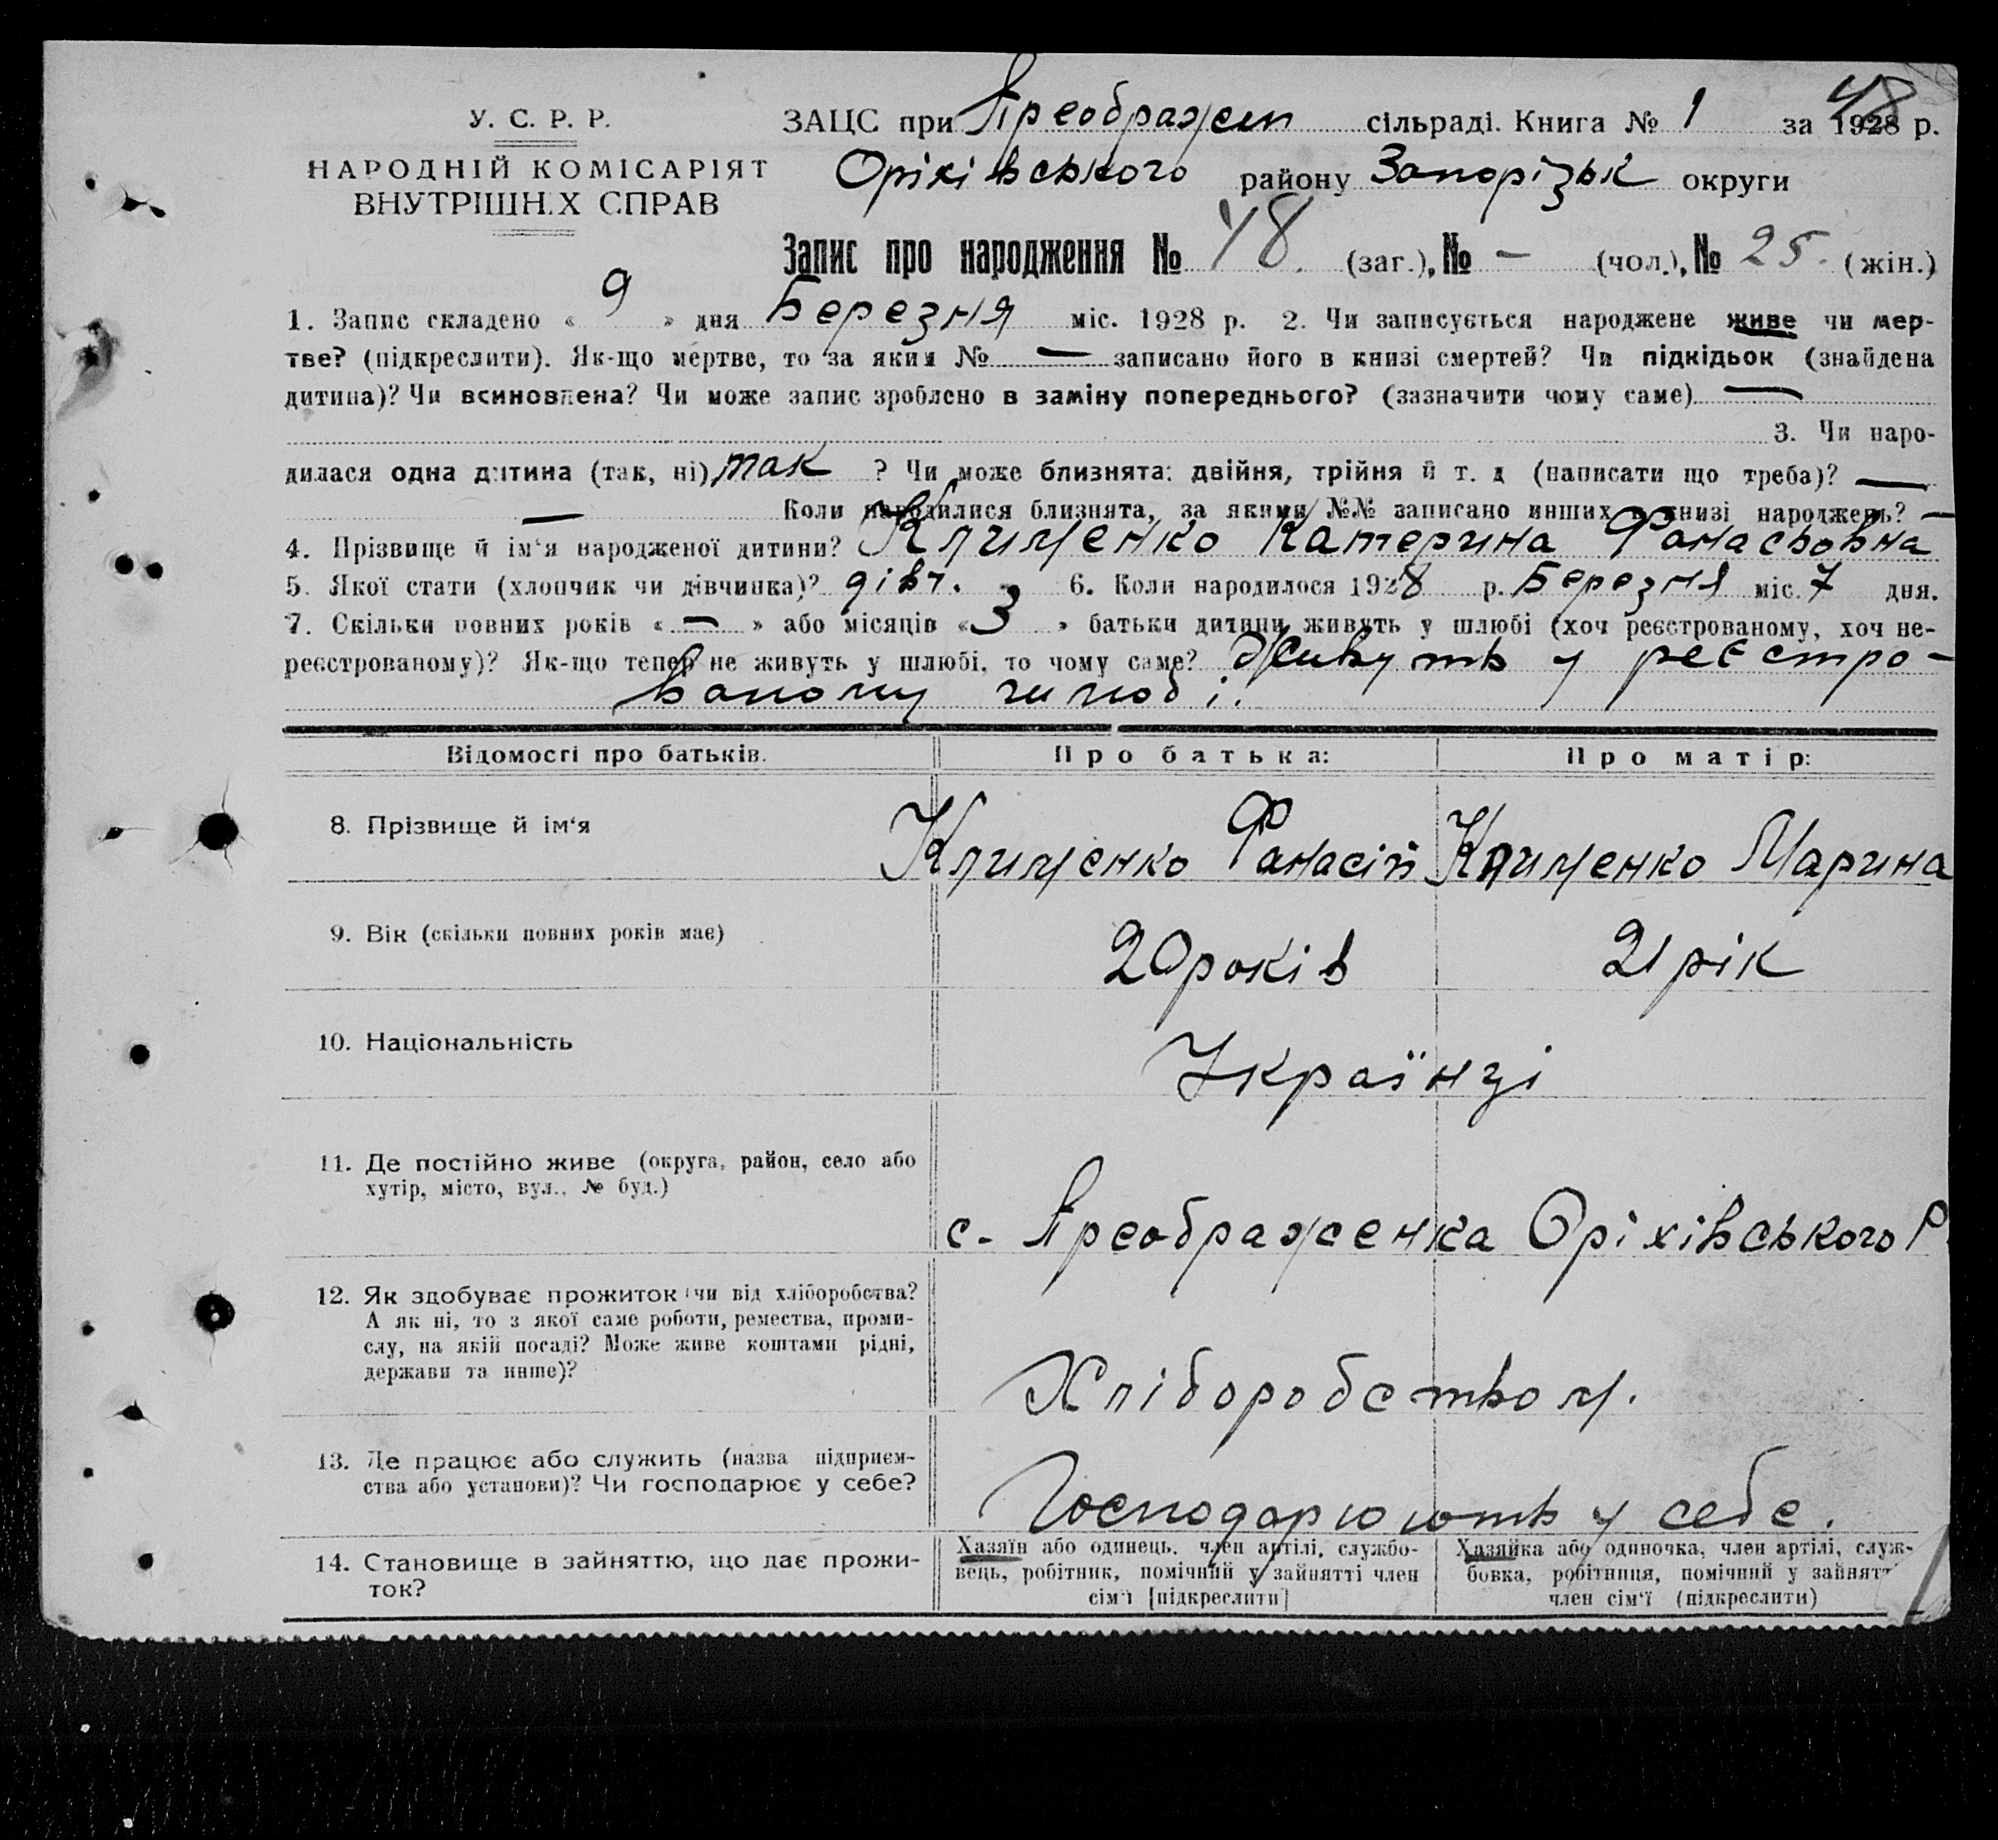 48
У. С. Р. Р.
ЗАЦС при Преображен сільраді. Книга № 1 за 1928 р.
НАРОДНІЙ КОМІСАРІЯТ
ВНУТРІШН.Х СПРАВ
Оріхівського району Запорізьк округи
Запис про народження № 48. (заг.), № — (чол.), № 25. (жін.)
1. Запис складено « 9 » дня Березня міс. 1928 р. 2. Чи записується народжене живе чи мер-
тве? (підкреслити). Як-що мертве, то за яким № — записано його в книзі смертей? Чи підкідьок (знайдена
дитина)? Чи всиновлена? Чи може запис зроблено в заміну попереднього? (зазначити чому саме) —
3. Чи наро-
дилася одна дитина (так, ні) так ? Чи може близнята: двійня, трійня й т. д (написати що треба)? —
— Коли народилися близнята, за якими №№ записано инших в книзі народжень? —
4. Прізвище й ім'я народженої дитини? Клименко Катерина Фанасьовна
5. Якої стати (хлопчик чи дівчинка)? дівч. 6. Коли народилося 1928 р. Березня міс. 7 дня.
7. Скільки повних років « — » або місяців « 3 » батьки дитини живуть у шлюбі (хоч реєстрованому, хоч не-
реєстрованому)? Як-що тепер не живуть у шлюбі, то чому саме? Живуть у реєстро-
ваному шлюбі.
Відомості про батьків. Про батька: Про матір:
8. Прізвище й ім'я Клименко Фанасій Клименко Марина
9. Вік (скільки повних років має) 20 років 21 рік
10. Національність Українці
11. Де постійно живе (округа, район, село або
хутір, місто, вул., № буд.)
с. Преображенка Оріхівського Р.
12. Як здобуває прожиток чи від хліборобства?
А як ні, то з якої саме роботи, ремества, проми-
слу, на якій посаді? Може живе коштами рідні,
держави та инше)?
Хліборобством.
13. Де працює або служить (назва підприєм-
ства або установи)? Чи господарює у себе?
Господарюють у себе.
14. Становище в зайняттю, що дає прожи-
ток?
Хазяїн або одинець, член артілі, службо-
вець, робітник, помічний у зайнятті член
сім'ї [підкреслити]
Хазяйка або одиночка, член артілі, служ-
бовка, робітниця, помічний у зайнятт
член сім'ї (підкреслити)